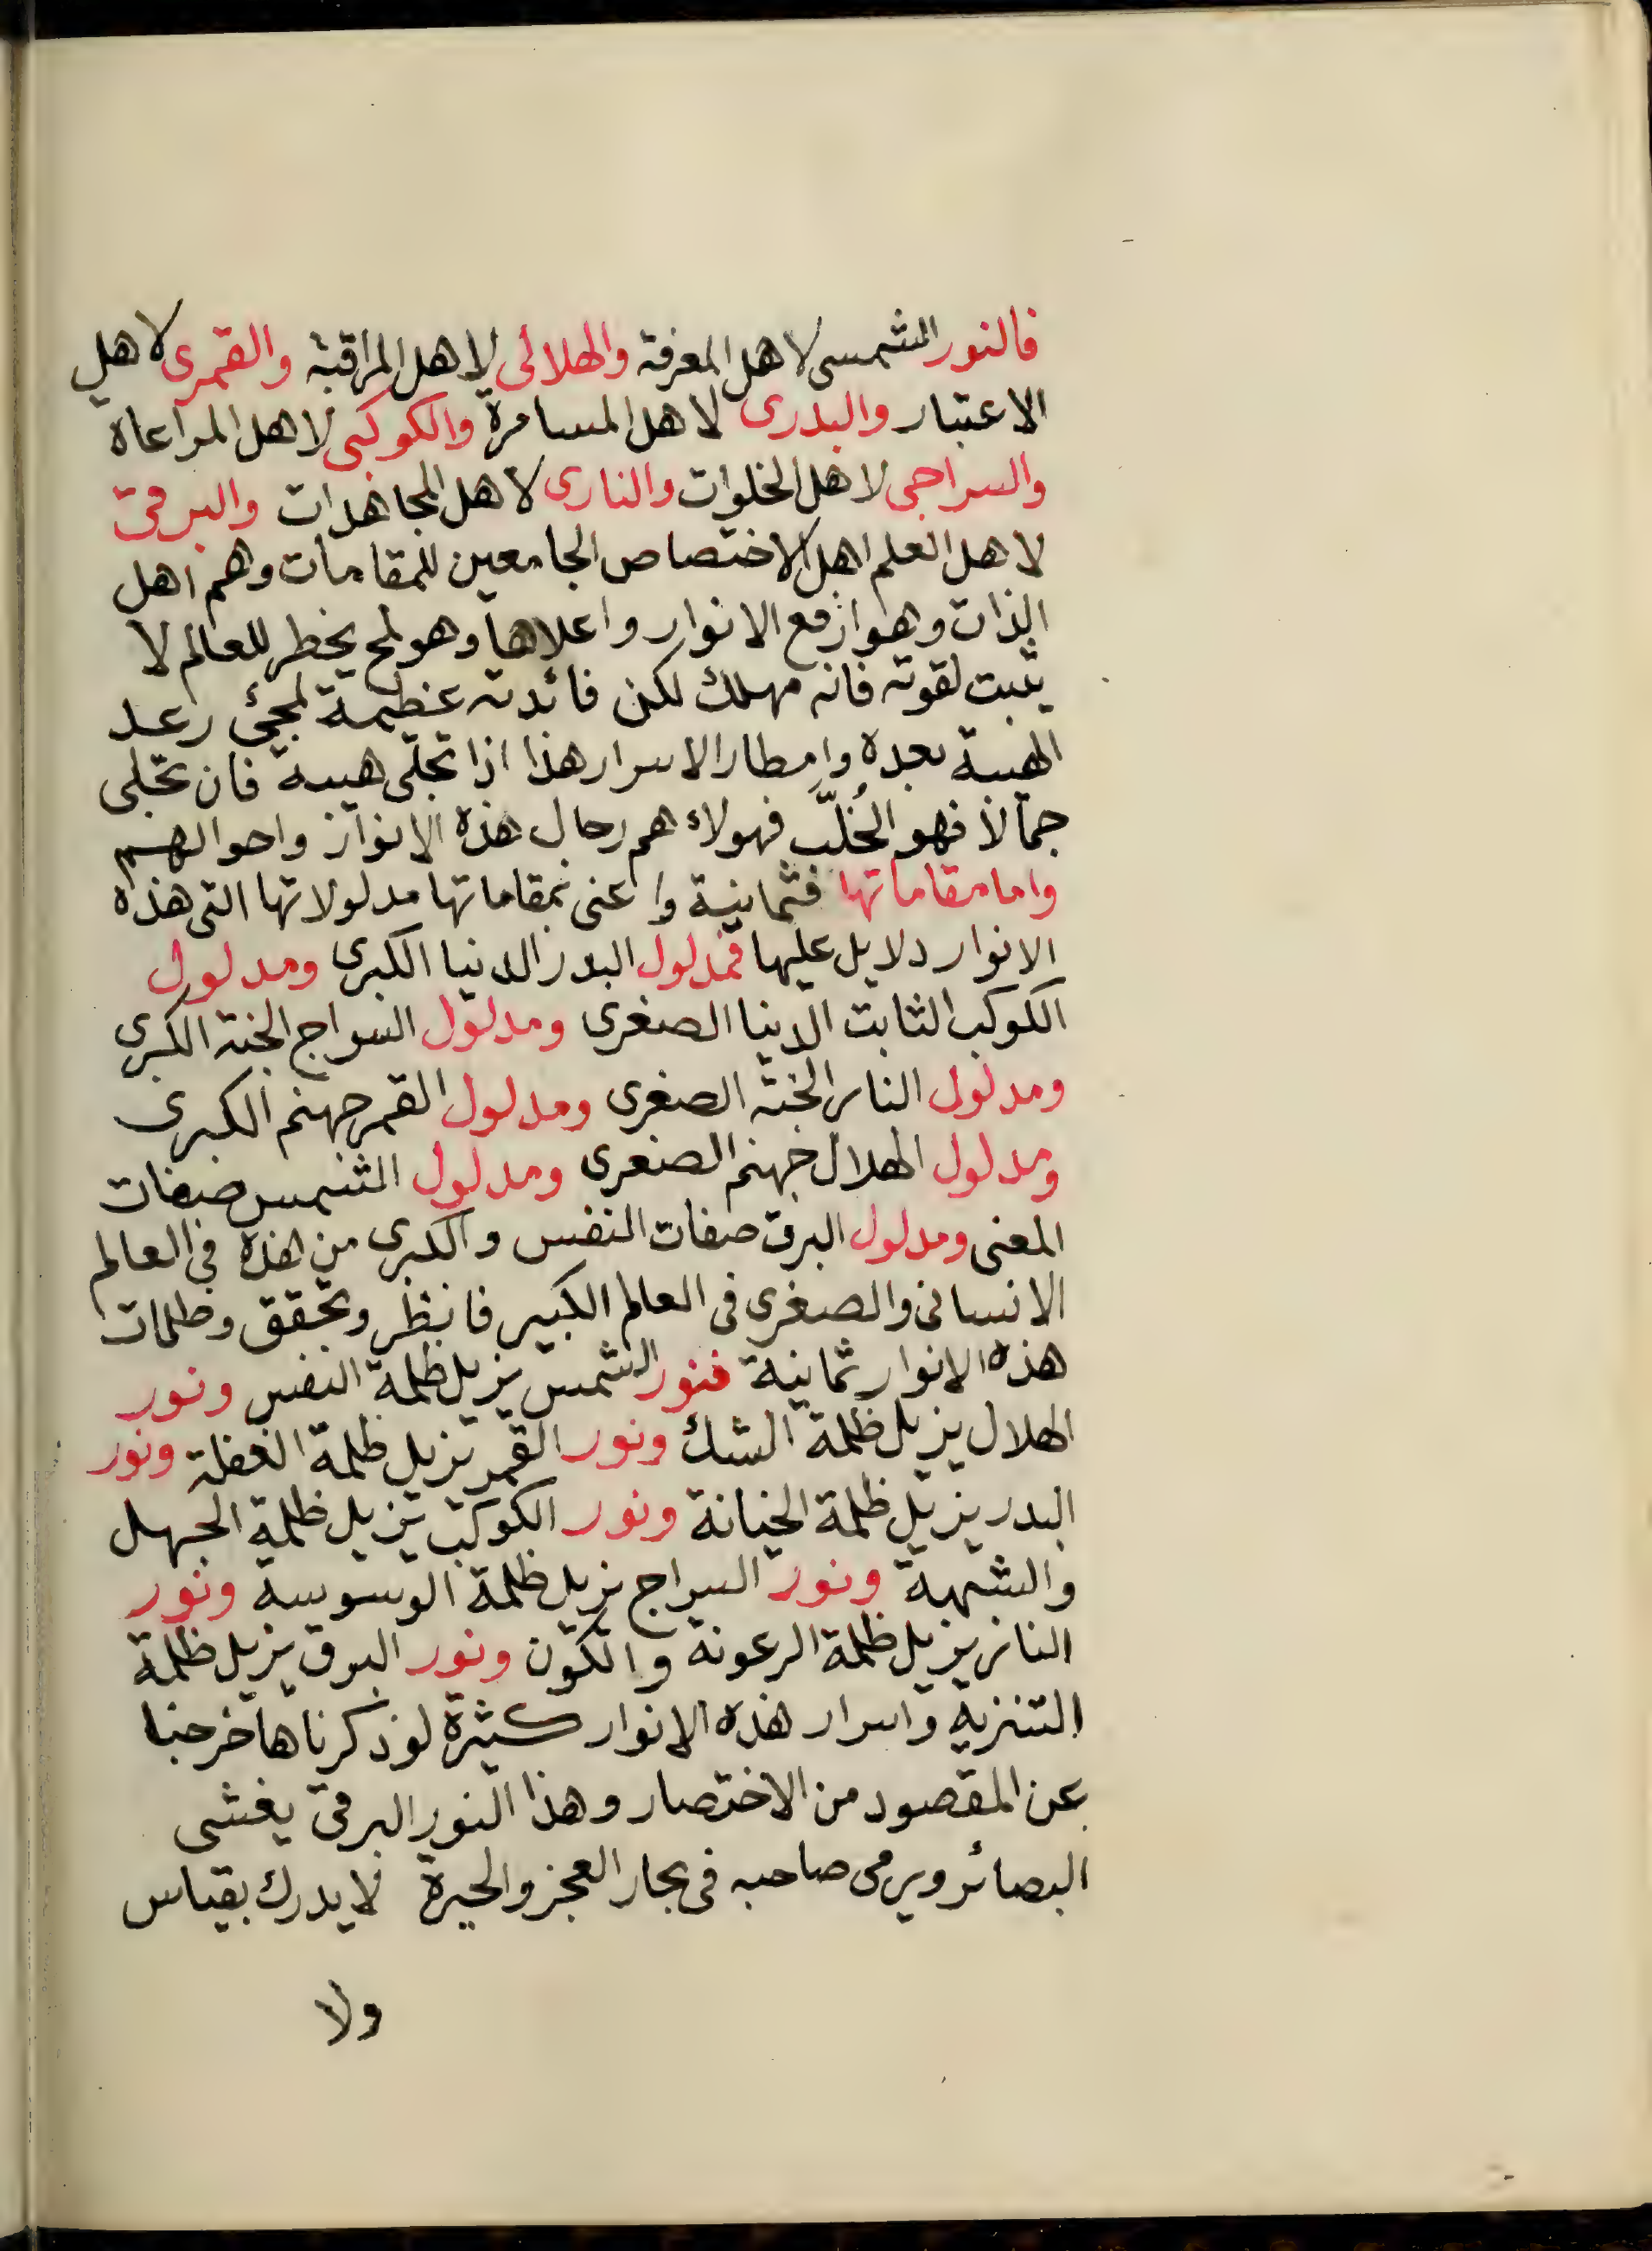 فالنور الشمسى لاهل المعرفة والهلالى لاهل المراقبة والقمرى لاهل
الاعتبار والبدرى لاهل المسامرة والكوكبى لاهل المراعاة
والسراجى لاهل الخلوات والنارى لاهل المجاهدات والبرقى
لاهل العلم اهل الاختصاص الجامعين للمقامات وهم اهل
الذات وهو ارفع الانوار واعلاها وهو لمح يخطر للعالم لا
يثبت لقوته فانه مهلك لكن فائدته عظيمة لمجئ رعد
الهيبة بعده وامطار الاسرار هذا اذا تجلى هيبة فان تجلى
جمالا فهو الخُلَّب فهولاء هم رجال هذه الانوار واحوالهم
واما مقاماتها فثمانية واعنى بمقاماتها مدلولاتها التى هذه
الانوار دلايل عليها فمدلول البدر الدنيا الكبرى ومدلول
الكوكب الثابت الدنيا الصغرى ومدلول السراج الجنة الكبرى
ومدلول النار الجنة الصغرى ومدلول القمر جهنم الكبرى
ومدلول الهلال جهنم الصغرى ومدلول الشمس صفات
المعنى ومدلول البرق صفات النفس والكبرى من هذه فى العالم
الانسانى والصغرى فى العالم الكبير فانظر وتحقق وظلمات
هذه الانوار ثمانية فنور الشمس يزيل ظلمة النفس ونور
الهلال يزيل ظلمة الشك ونور القمر يزيل ظلمة الغفلة ونور
البدر يزيل ظلمة الخيانة ونور الكوكب يزيل ظلمة الجهل
والشبهة ونور السراج يزيل ظلمة الوسوسة ونور
النار يزيل ظلمة الرعونة والكون ونور البرق يزيل ظلمة
التنزيه واسرار هذه الانوار كثيرة لو ذكرناها خرجنا
عن المقصود من الاختصار وهذا النور البرقى يغشى
البصائر ويرمى صاحبه فى بحار العجز والحيرة لا يدرك بقياس
ولا